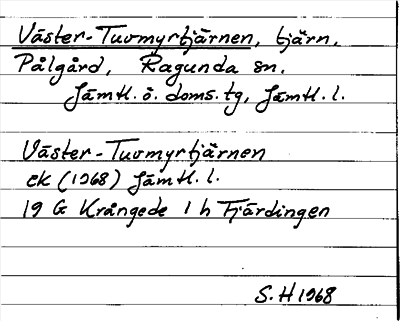 Väster-Tuvmyrtjärnen, tjärn,
Pålgård, Ragunda sn.
Jämtl. ö. doms. tg, Jämtl. l.
Väster-Tuvmyrtjärnen
ek (1968) Jämtl. l.
19 G Krångede 1 h Fjärdingen
S. H 1968